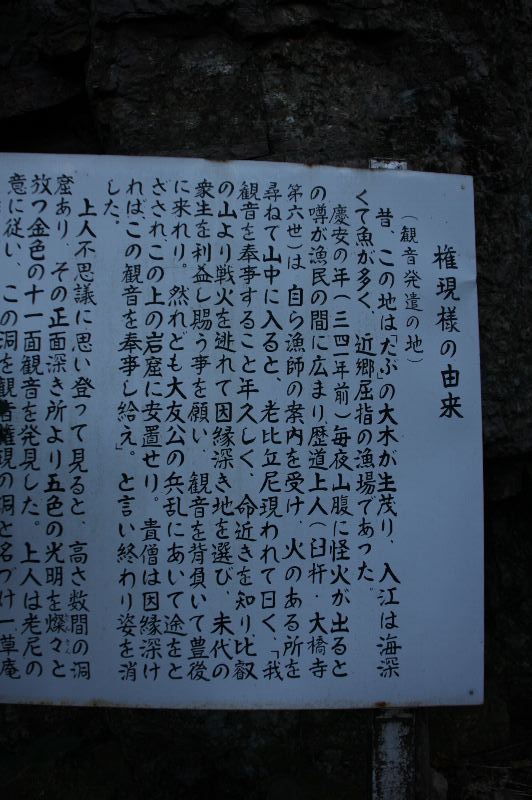 権現様の由来
(観音発遣の地)
昔、この地は「たぶ」の大木が生茂り、入江は海深
くて魚が多く、近郷屈指の漁場であった。
慶安の年(三四一年前)毎夜山腹に怪火が出ると
の噂が漁民の間に広まり歴道上人(臼杵・大橋寺
第六世)は自ら漁師の案内を受け、火のある所を
尋ねて山中に入ると、老比丘尼現われて曰く、「我
観音を奉事すること年久しく、命近きを知り、比叡
の山より戦火を逃れて因縁深き地を選び、末代の
衆生を利益し賜う事を願い、観音を背負いて豊後
に来れり。然れども大友公の兵乱にあいて途をと
ざされこの上の岩窟に安置せり。貴僧は因縁深け
れば、この観音を奉事し給え」。と言い終わり姿を消
した。
上人不思議に思い登って見ると、高さ数間の洞
窟あり、その正面深き所より五色の光明を燦々と
放つ金色の十一面観音を発見した。上人は老尼の
意に従い、この洞を観音権現の洞と名づけ一草庵